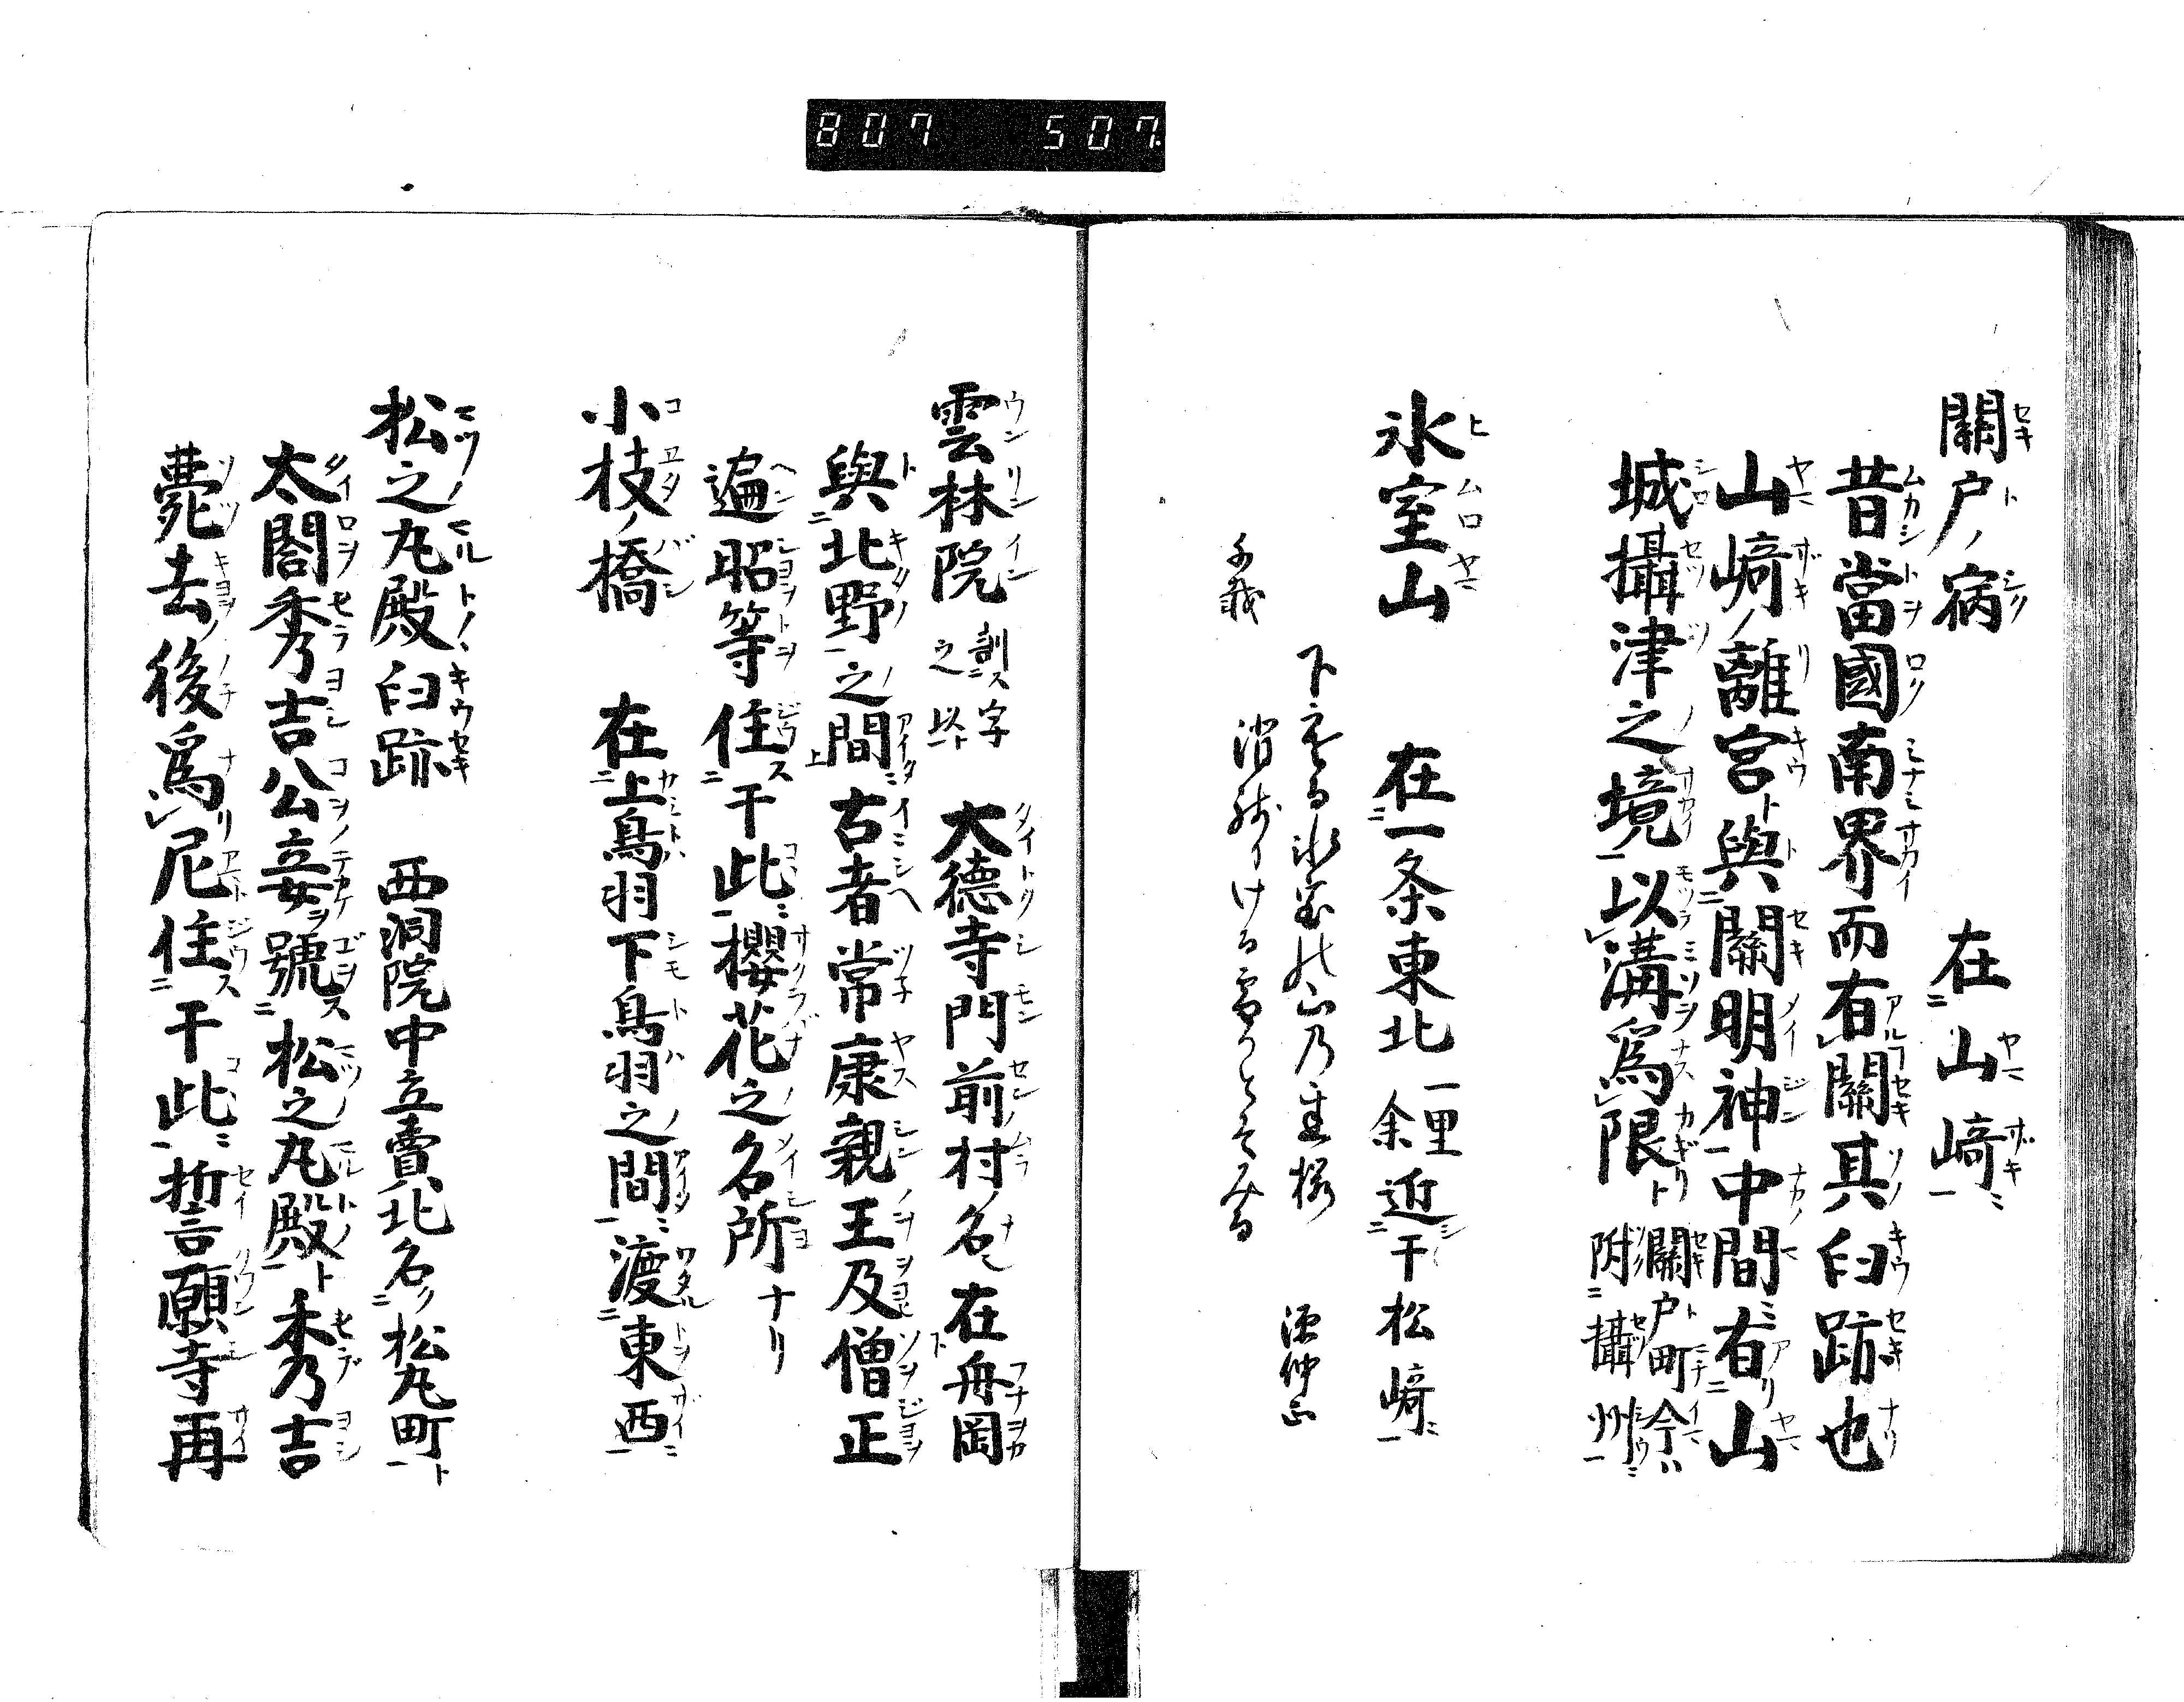 807 507.
關戸ノ病 在山﨑
昔當國南界而有關其臼跡也
山﨑ノ離宮ト與關明神中間有山
城攝津之境以溝爲限ト 關戸町今ハ
附攝州
氷室山 在一条東北 一里余 近于松﨑
下さゆる氷室の山乃 桜
千載 消残りける雪かとそみる
源仲正
雲林院 訓ス字之以ト 大德寺門前村ノ名在舟岡
與北野之間古者常康親王及僧正
遍昭等住ス于此櫻花之名所ナリ
小枝ノ橋 在上鳥羽下鳥羽之間渡東西
松之丸殿臼跡 西洞院中立賣北名ノ松丸町ト
太閤秀吉公妾ヲ號ス松之丸殿ト秀吉
薨去後爲尼住ス于此誓願寺再